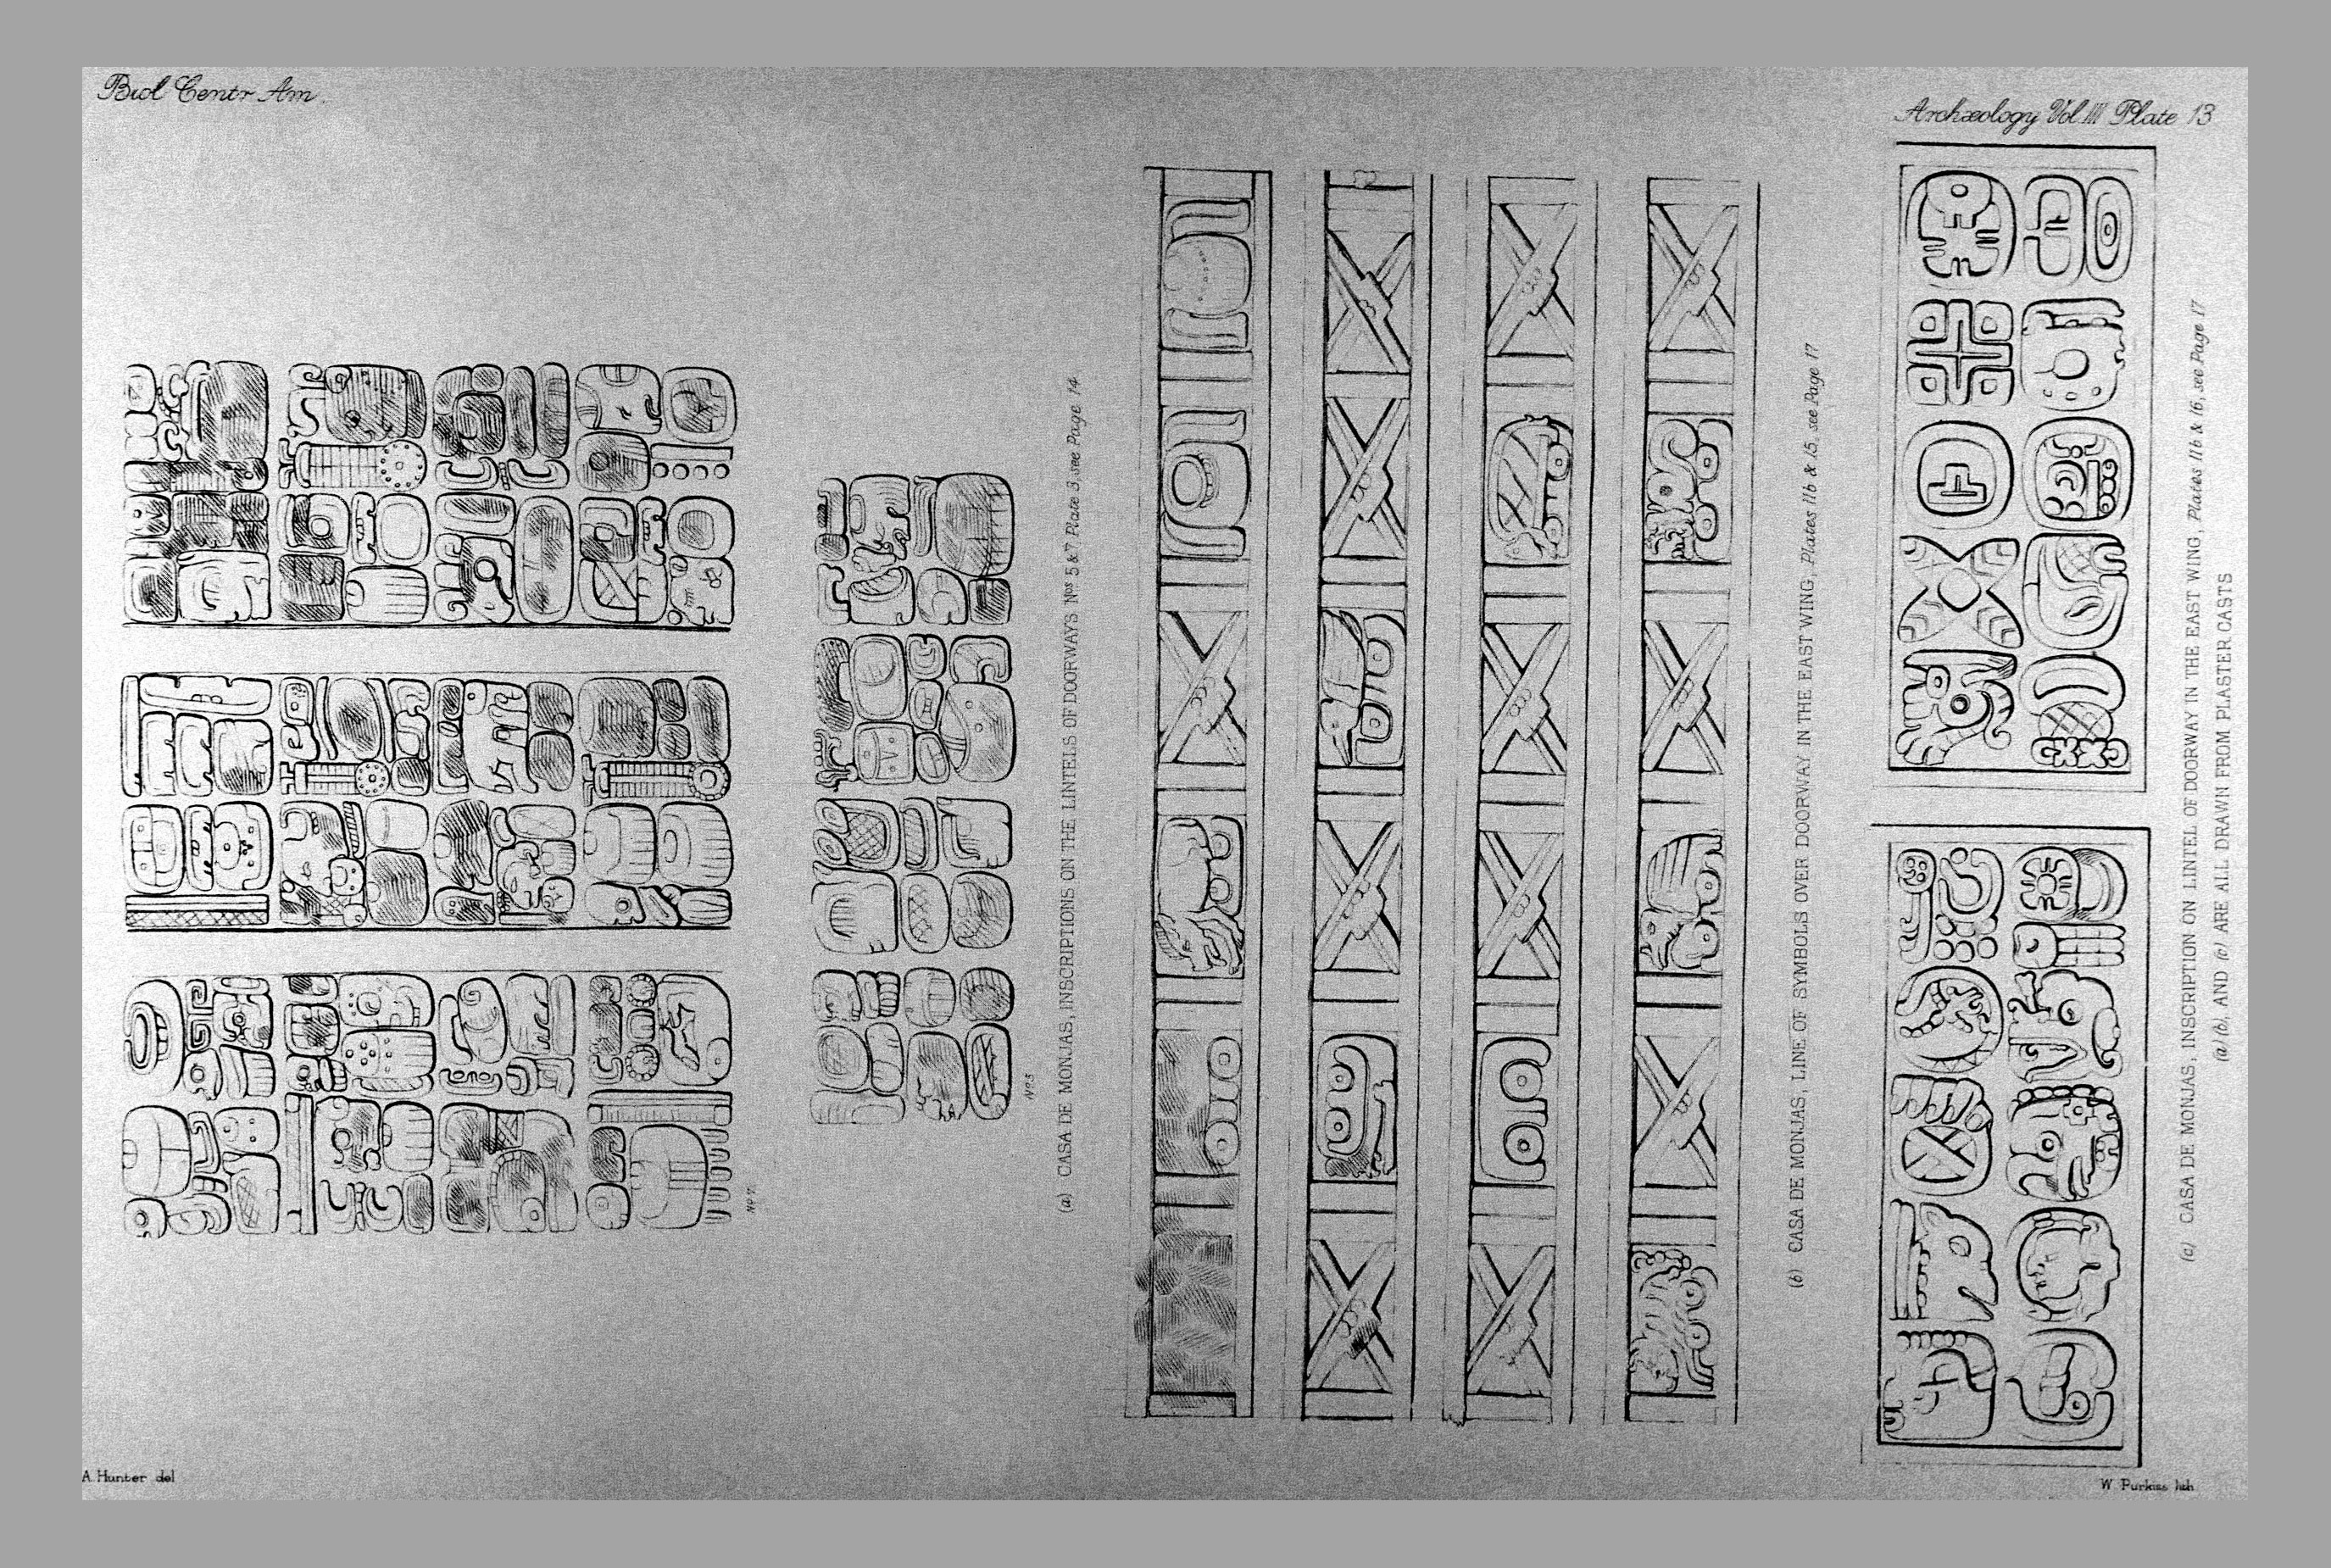 Biol Centr Am.
Archæology Vol III Plate 13
Nº 7
Nº 5
(a) CASA DE MONJAS, INSCRIPTIONS ON THE LINTELS OF DOORWAYS Nos 5 & 7, Plate 3, see Page 14
(b) CASA DE MONJAS, LINE OF SYMBOLS OVER DOORWAY IN THE EAST WING, Plates 11b & 15, see Page 17
(c) CASA DE MONJAS, INSCRIPTION ON LINTEL OF DOORWAY IN THE EAST WING, Plates 11b & 16, see Page 17
(a) (b), AND (c) ARE ALL DRAWN FROM PLASTER CASTS
A. Hunter del
W. Purkiss lith.